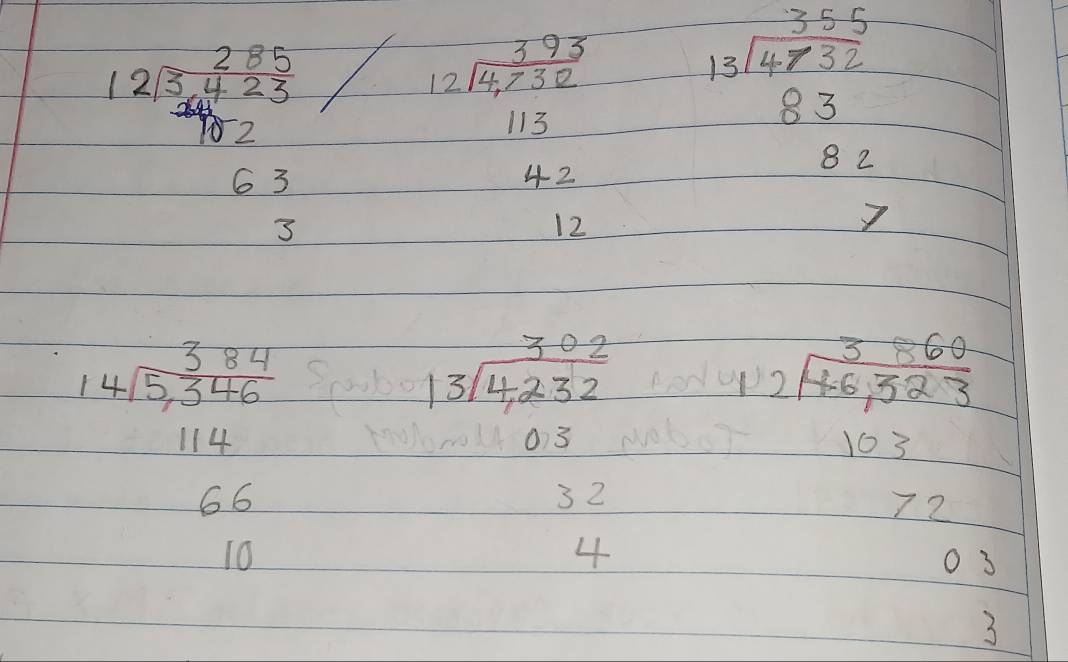 285 393 355
12 3,423 12 4,732 13 4732
102 113 83
63 42 82
3 12 7
384 302 3860
14 5,346 13 4,232 12 46,323
114 03 103
66 32 72
10 4 03
3